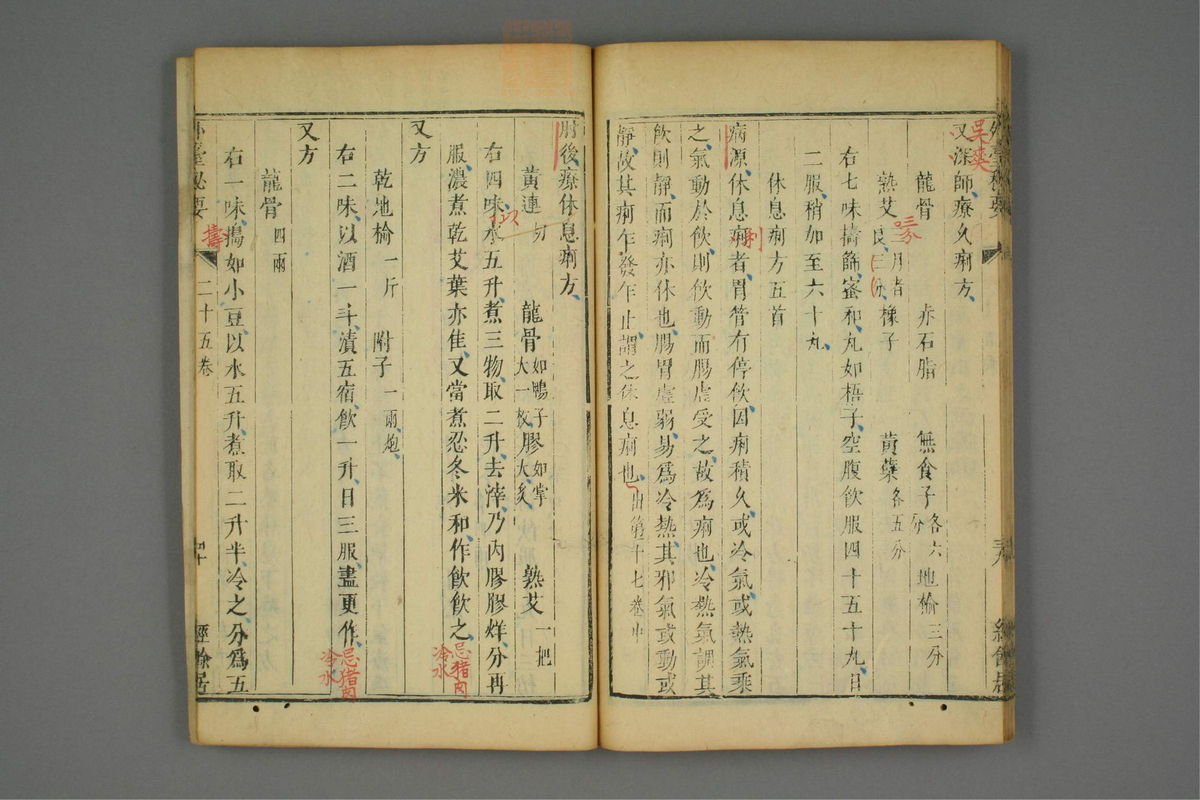 又深師療久痢方
龍骨 赤石脂 無食子各六分 地榆三分
熟艾 橡子 黃蘗各五分
右七味擣篩蜜和丸如梧子空腹飲服四十五十丸日
二服稍加至六十丸
休息痢方五首
病源休息痢者胃管有停飲因痢積久或冷氣或熱氣乘
之氣動於飲則飲動而腸虛受之故為痢也冷熱氣調其
飲則靜而痢亦休也腸胃虛弱易為冷熱其邪氣或動或
靜故其痢乍發乍止謂之休息痢也出第十七卷中
肘後療休息痢方
黃連切 龍骨如鴨子大一枚 膠如掌大炙 熟艾一把
右四味水五升煮三物取二升去滓乃內膠膠烊分再
服濃煮乾艾葉亦佳又當煮忍冬米和作飲飲之忌猪肉冷水
又方
乾地榆一斤 附子一兩炮
右二味以酒一斗漬五宿飲一升日三服盡更作忌猪肉冷水
又方
龍骨四兩
右一味搗如小豆以水五升煮取二升半冷之分為五
外臺秘要 二十五卷 四十 經餘居